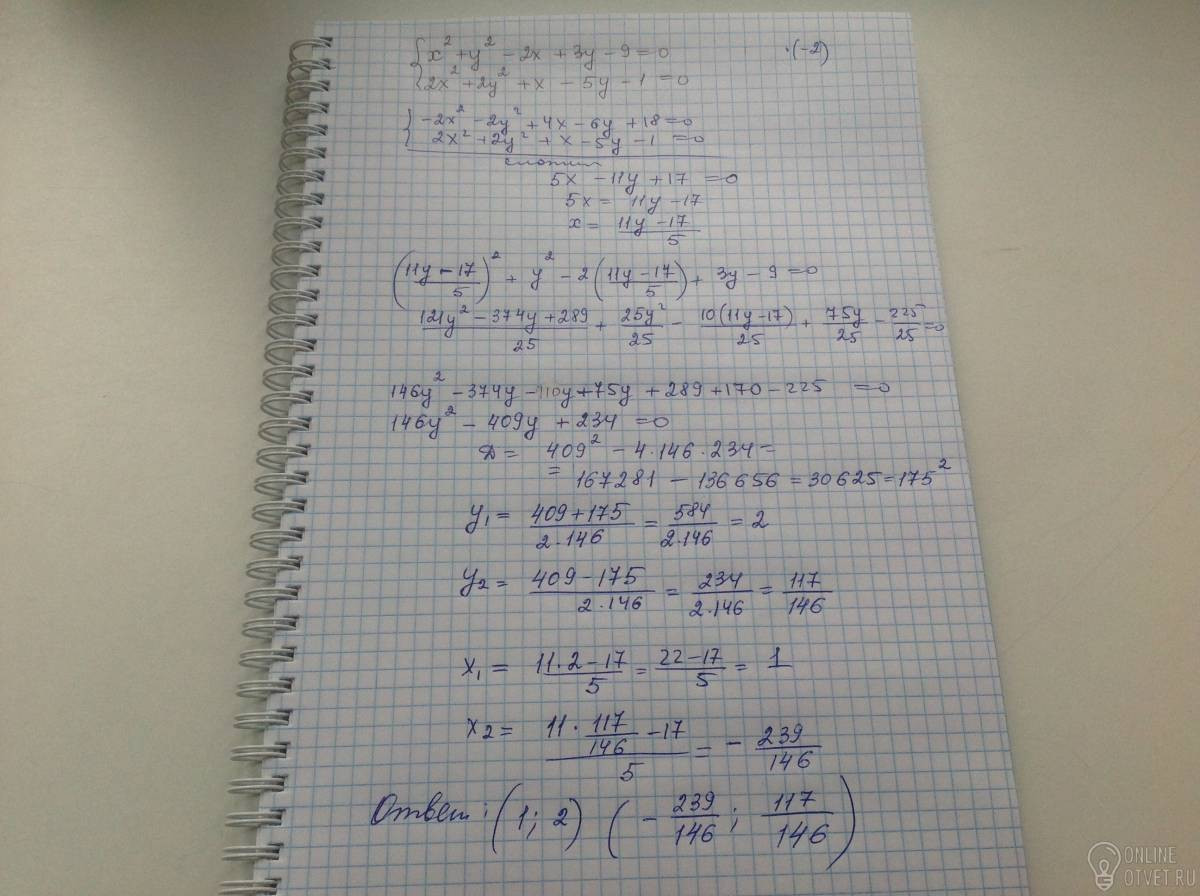 { x² + y² - 2x + 3y - 9 = 0 ·(-2)
{ 2x² + 2y² + x - 5y - 1 = 0
{ -2x² - 2y² + 4x - 6y + 18 = 0
{ 2x² + 2y² + x - 5y - 1 = 0
сложим
5x - 11y + 17 = 0
5x = 11y - 17
x = (11y - 17)/5
((11y - 17)/5)² + y² - 2((11y - 17)/5) + 3y - 9 = 0
(121y² - 374y + 289)/25 + 25y²/25 - 10(11y - 17)/25 + 75y/25 - 225/25 = 0
146y² - 374y - 110y + 75y + 289 + 170 - 225 = 0
146y² - 409y + 234 = 0
D = 409² - 4·146·234 =
= 167281 - 136656 = 30625 = 175²
y₁ = (409 + 175)/(2·146) = 584/(2·146) = 2
y₂ = (409 - 175)/(2·146) = 234/(2·146) = 117/146
x₁ = (11·2 - 17)/5 = (22 - 17)/5 = 1
x₂ = (11·117/146 - 17)/5 = - 239/146
Ответ: (1; 2) (- 239/146; 117/146)
ONLINE
OTVET.RU